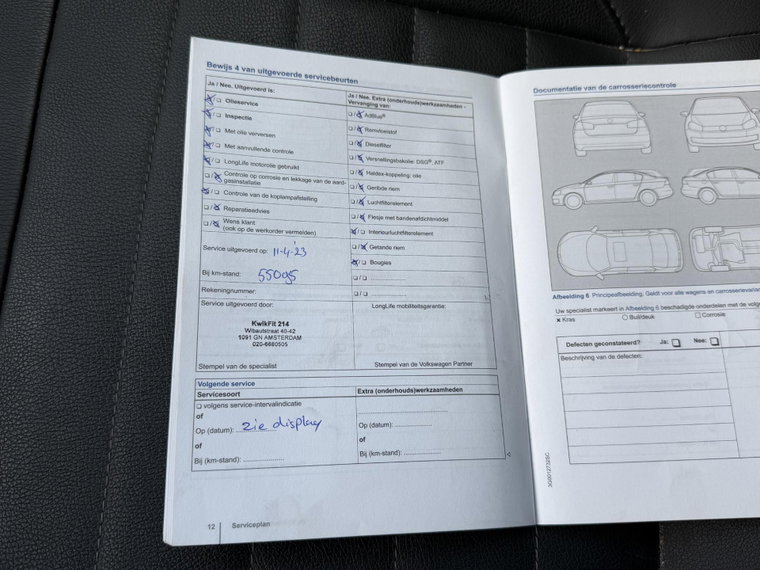 Bewijs 4 van uitgevoerde servicebeurten
Ja / Nee. Uitgevoerd is:
Olieservice
Inspectie
Met olie verversen
Met aanvullende controle
LongLife motorolie gebruikt
Controle op corrosie en lekkage van de aard-
gasinstallatie
Controle van de koplampafstelling
Reparatieadvies
Wens klant
(ook op de werkorder vermelden)
Service uitgevoerd op: 11-4-'23
Bij km-stand: 55095
Rekeningnummer:
Service uitgevoerd door:
KwikFit 214
Wibautstraat 40-42
1091 GN AMSTERDAM
020-6680505
Stempel van de specialist
Ja / Nee. Extra (onderhouds)werkzaamheden -
Vervanging van:
AdBlue®
Remvloeistof
Dieselfilter
Versnellingsbakolie: DSG®, ATF
Haldex-koppeling: olie
Geribde riem
Luchtfilterelement
Flesje met bandenafdichtmiddel
Interieurluchtfilterelement
Getande riem
Bougies
LongLife mobiliteitsgarantie:
Stempel van de Volkswagen Partner
Volgende service
Servicesoort
volgens service-intervalindicatie
of
Op (datum): zie display
of
Bij (km-stand):
Extra (onderhouds)werkzaamheden
Op (datum):
of
Bij (km-stand):
12 Serviceplan
Documentatie van de carrosseriecontrole
Afbeelding 6 Principeafbeelding: Geldt voor alle wagens en carrosserievarian
Uw specialist markeert in Afbeelding 6 beschadigde onderdelen met de volge
x Kras
Buil/deuk
Corrosie
Defecten geconstateerd? Ja: Nee:
Beschrijving van de defecten: